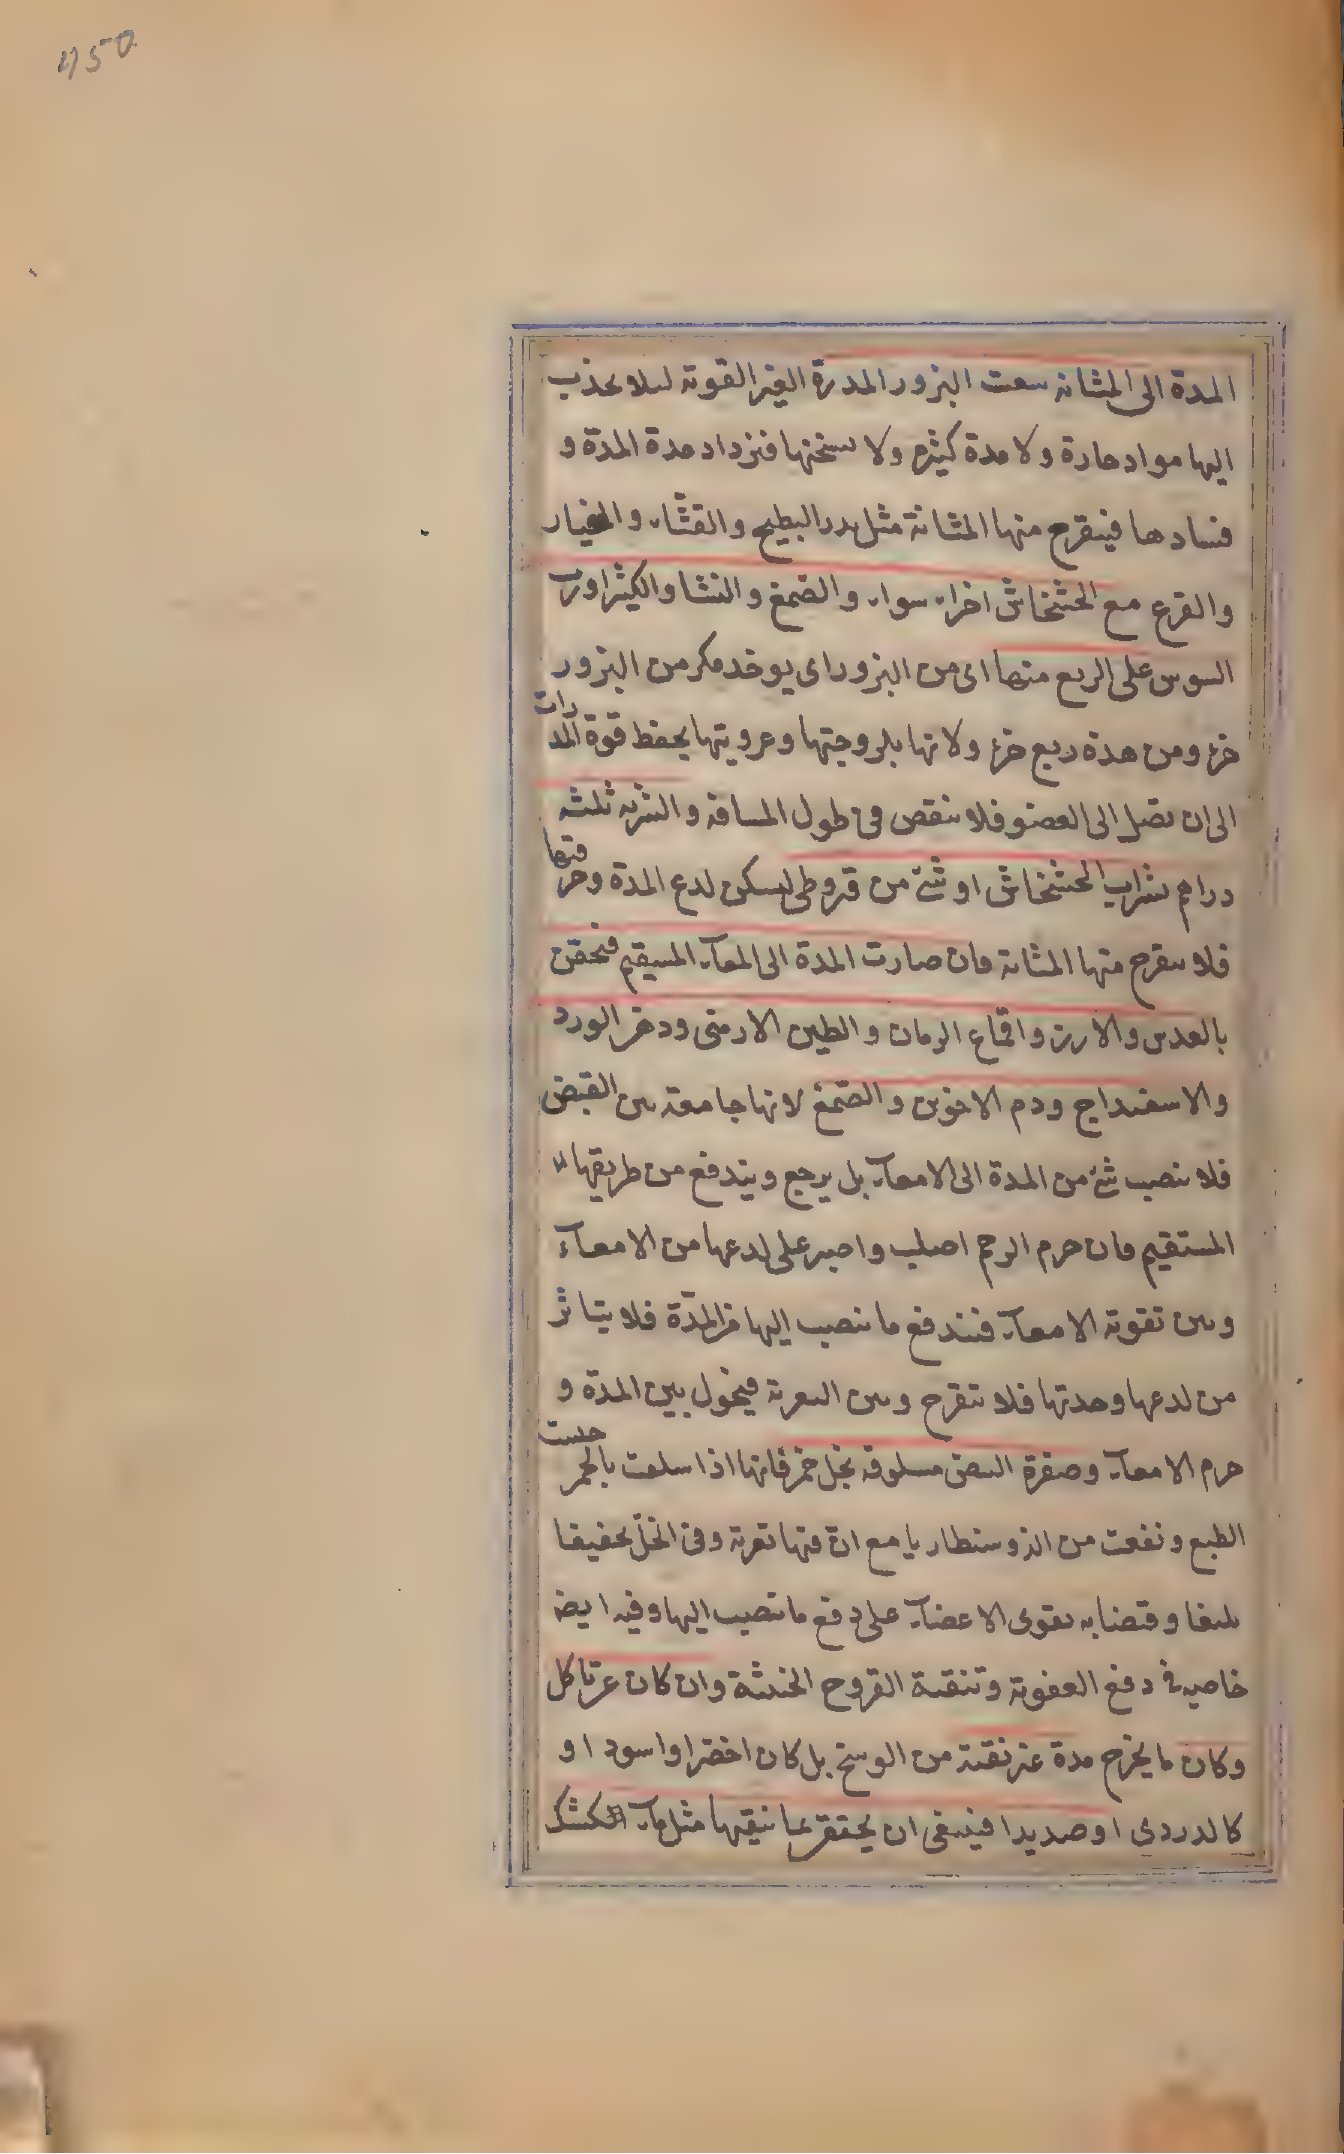 450
المدة الى المثانه سعت البزور المدرة الغير القوته لىلا ىجذب
اليها مواد حارة ولا مدة كثيرة ولا ىسخنها فنزداد مدة المدة و
فسادها فينقرح منها المثانة مثل بزر البطيخ والقثاء والخيار
والقرع مع الخشخاش اجزاء سواء والصمغ والنشا والكثيرا ورب
السوس على الربع منها اى من البزور اى يوخذ مكر من البزور
جزء ومن هذه ربع جزء ولانها بلزوجتها وغرويتها يحفظ قوة المد
رات
الى ان تصل الى العضو فلا ىنقص فى طول المسافة والشربه ثلثه
دراهم بشراب الخشخاش او شئ من قروطى لىسكن لدع المدة وحر
قتها
فلا ىىقرح منها المثانة فان صارت المدة الى المعاء المستقيم فىحقن
بالعدس والارز واقماع الرمان والطين الارمنى ودهن الورد
والاسفيداج ودم الاخوين والصمغ لانها جامعة بين القبض
فلا ىنصب شئ من المدة الى الامعاء بل يرجع ويندفع من طريقها
المستقيم فان جرم الرحم اصلب واصبر على لدعها من الامعاء
وبين تقوية الامعاء فىندفع ما ىنصب اليها من المدة فلا يتاثر
من لدعها وحدتها فلا تتقرح وبين التغرية فيحول بين المدة و
جرم الامعاء وصفرة البيض مسلوقه بخل خمر فانها اذا سلقت بالخمر
حبست
الطبع ونفعت من الذوسنطاريا مع ان فيها تغرية وفى الخل تجفيفا
بليغا وقبضا به ىقوى الاعضاء على دفع ما تصب اليها وفيه ايضه
خاصيه فى دفع العفونة وتنقية القروح الخبيثة وان كان عن تاكل
وكان ما يخرج مدة غير نقية من الوسخ بل كان اخضر او اسود او
كالدردى او صديدا فينبغى ان يحتقن بما ينقيها مثل ماء الكشك